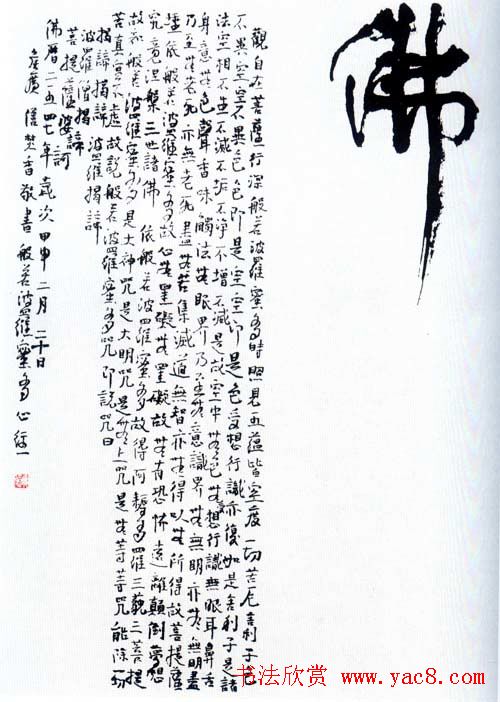 佛
觀自在菩薩行深般若波羅蜜多時照見五蘊皆空度一切苦厄舍利子色
不異空空不異色色即是空空即是色受想行識亦復如是舍利子是諸
法空相不生不滅不垢不淨不增不減是故空中無色無受想行識無眼耳鼻舌
身意無色聲香味觸法無眼界乃至無意識界無無明亦無無明盡
乃至無老死亦無老死盡無苦集滅道無智亦無得以無所得故菩提薩
埵依般若波羅蜜多故心無罣礙無罣礙故無有恐怖遠離顛倒夢想
究竟涅槃三世諸佛依般若波羅蜜多故得阿耨多羅三藐三菩提
故知般若波羅蜜多是大神咒是大明咒是無上咒是無等等咒能除一切
苦真實不虛故說般若波羅蜜多咒即說咒曰
揭諦揭諦 波羅揭諦
波羅僧揭諦
菩提薩婆訶
佛曆二五四七年歲次甲申二月二十日
焚香敬書般若波羅蜜多心經一
书法欣赏 www.yac8.com